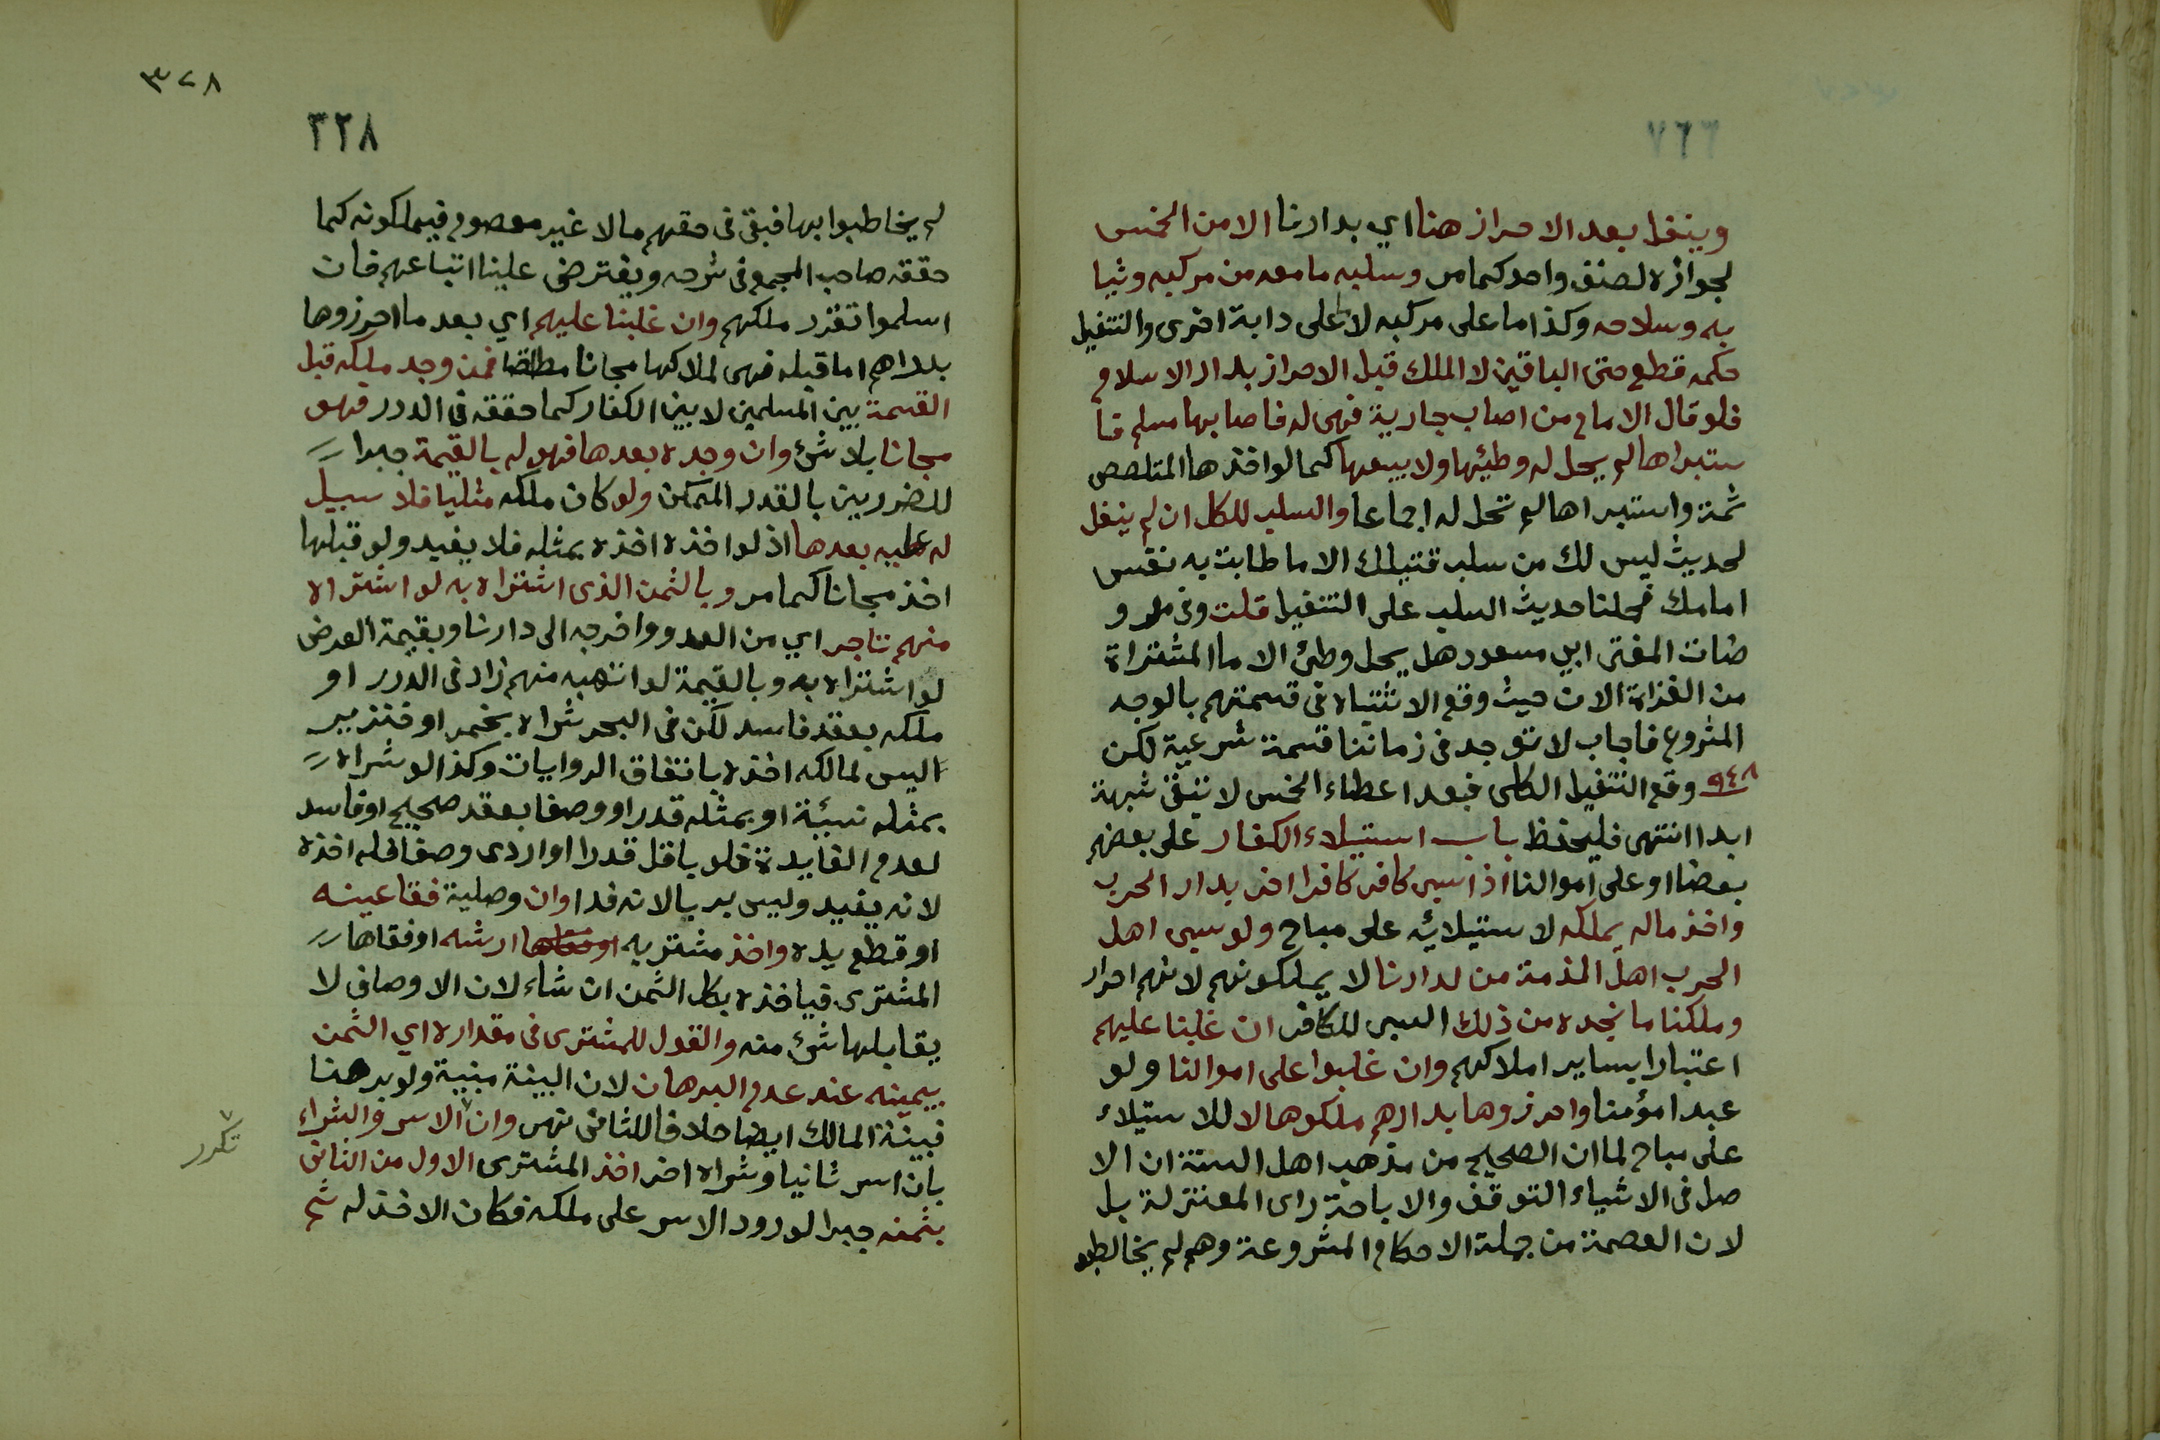 ٧٦٦
وينفل بعد الاحراز هنا اي بدارنا الا من الخمس
لجوازه لصنف واحد كما مر وسلبه ما معه من مركبه وثيا
به وسلاحه وكذا ما على مركبه لا على دابة اخرى والتنفيل
حكمه قطع حق الباقين لا الملك قبل الاحراز بدار الاسلام
فلو قال الامام من اصاب جارية فهى له فاصابها مسلم فا
ستبراها لم يحل له وطيئها ولا بيعها كما لو اخذها المتلصص
ثمة واستبراها لم تحل له اجماعا والسلب للكل ان لم ينفل
لحديث ليس لك من سلب قتيلك الا ما طابت به نفس
امامك فحملنا حديث السلب على التنفيل قلت وفى معرو
ضات المفتى ابى سعود هل يحل وطئ الاما المشتراة
من الغزاة الان حيث وقع الاشتباه فى قسمتهم بالوجه
المشروع فاجاب لا توجد فى زماننا قسمة شرعية لكن
٩٤٨ وقع التنفيل الكلى فبعد اعطاء الخمس لا تبقى شبهة
ابدا انتهى فليحفظ باب استيلاء الكفار على بعضهم
بعضا او على اموالنا اذا سبى كافر كافرا اخر بدار الحرب
واخذ ماله يملكه لاستيلائه على مباح ولو سبى اهل
الحرب اهل الذمة من دارنا لا يملكونهم لانهم احرار
وملكنا ما نجده من ذلك السبى للكافر ان غلبنا عليهم
اعتبارا بساير املاكهم وان غلبوا على اموالنا ولو
عبدا مؤمنا واحرزوها بدارهم ملكوها لا للاستيلاء
على مباح لما ان الصحيح من مذهب اهل السنة ان الا
صل فى الاشياء التوقف والاباحة راى المعتزلة بل
لان العصمة من جملة الاحكام المشروعة وهم لم يخاطبو
٣٢٨
٣٢٨
لم يخاطبوا بها فبقى فى حقهم مالا غير معصوم فيملكونه كما
حققه صاحب المجمع فى شرحه ويفترض علينا اتباعهم فان
اسلموا تقرر ملكهم وان غلبنا عليهم اي بعد ما احرزوها
بدارهم اما قبله فهى لملاكها مجانا مطلقا فمن وجد ملكه قبل
القسمة بين المسلمين لا بين الكفار كما حققه فى الدرر فهو
مجانا بلا شئ وان وجده بعدها فهو له بالقيمة جبرا
للضررين بالقدر الممكن ولو كان ملكه مثليا فلا سبيل
له عليه بعدها اذ لو اخذه اخذه بمثله فلا يفيد ولو قبلها
اخذ مجانا كما مر وبالثمن الذى اشتراه به لو اشتراه
منهم تاجر اي من العدو واخرجه الى دارنا وبقيمة العرض
لو اشتراه به وبالقيمة لو اتهبه منهم زاد فى الدرر او
ملكه بعقد فاسد لكن فى البحر شراه بخمر او خنزير
ليس لمالكه اخذه باتفاق الروايات وكذا لو شراه
بمثله نسيئة او بمثله قدرا ووصفا بعقد صحيح او فاسد
لعدم الفايدة فلو باقل قدرا او اردى وصفا فله اخذه
لانه يفيد وليس بربا لانه فدا وان وصلية فقا عينه
او قطع يده واخذ مشتريه ارشه او فقاها
المشترى فياخذه بكل الثمن ان شاء لان الاوصاف لا
يقابلها شئ منه والقول للمشترى فى مقداره اي الثمن
بيمينه عند عدم البرهان لان البينة مبنية ولو برهنا
فبينة المالك ايضا خلافا للثانى نهر وان ٧ الاسر والشراء
بان اسر ثانيا وشراه اخر اخذ المشترى الاول من الثانى
بثمنه جبرا لورود الاسر على ملكه فكان الاخذ له ثم
٧
تكرر